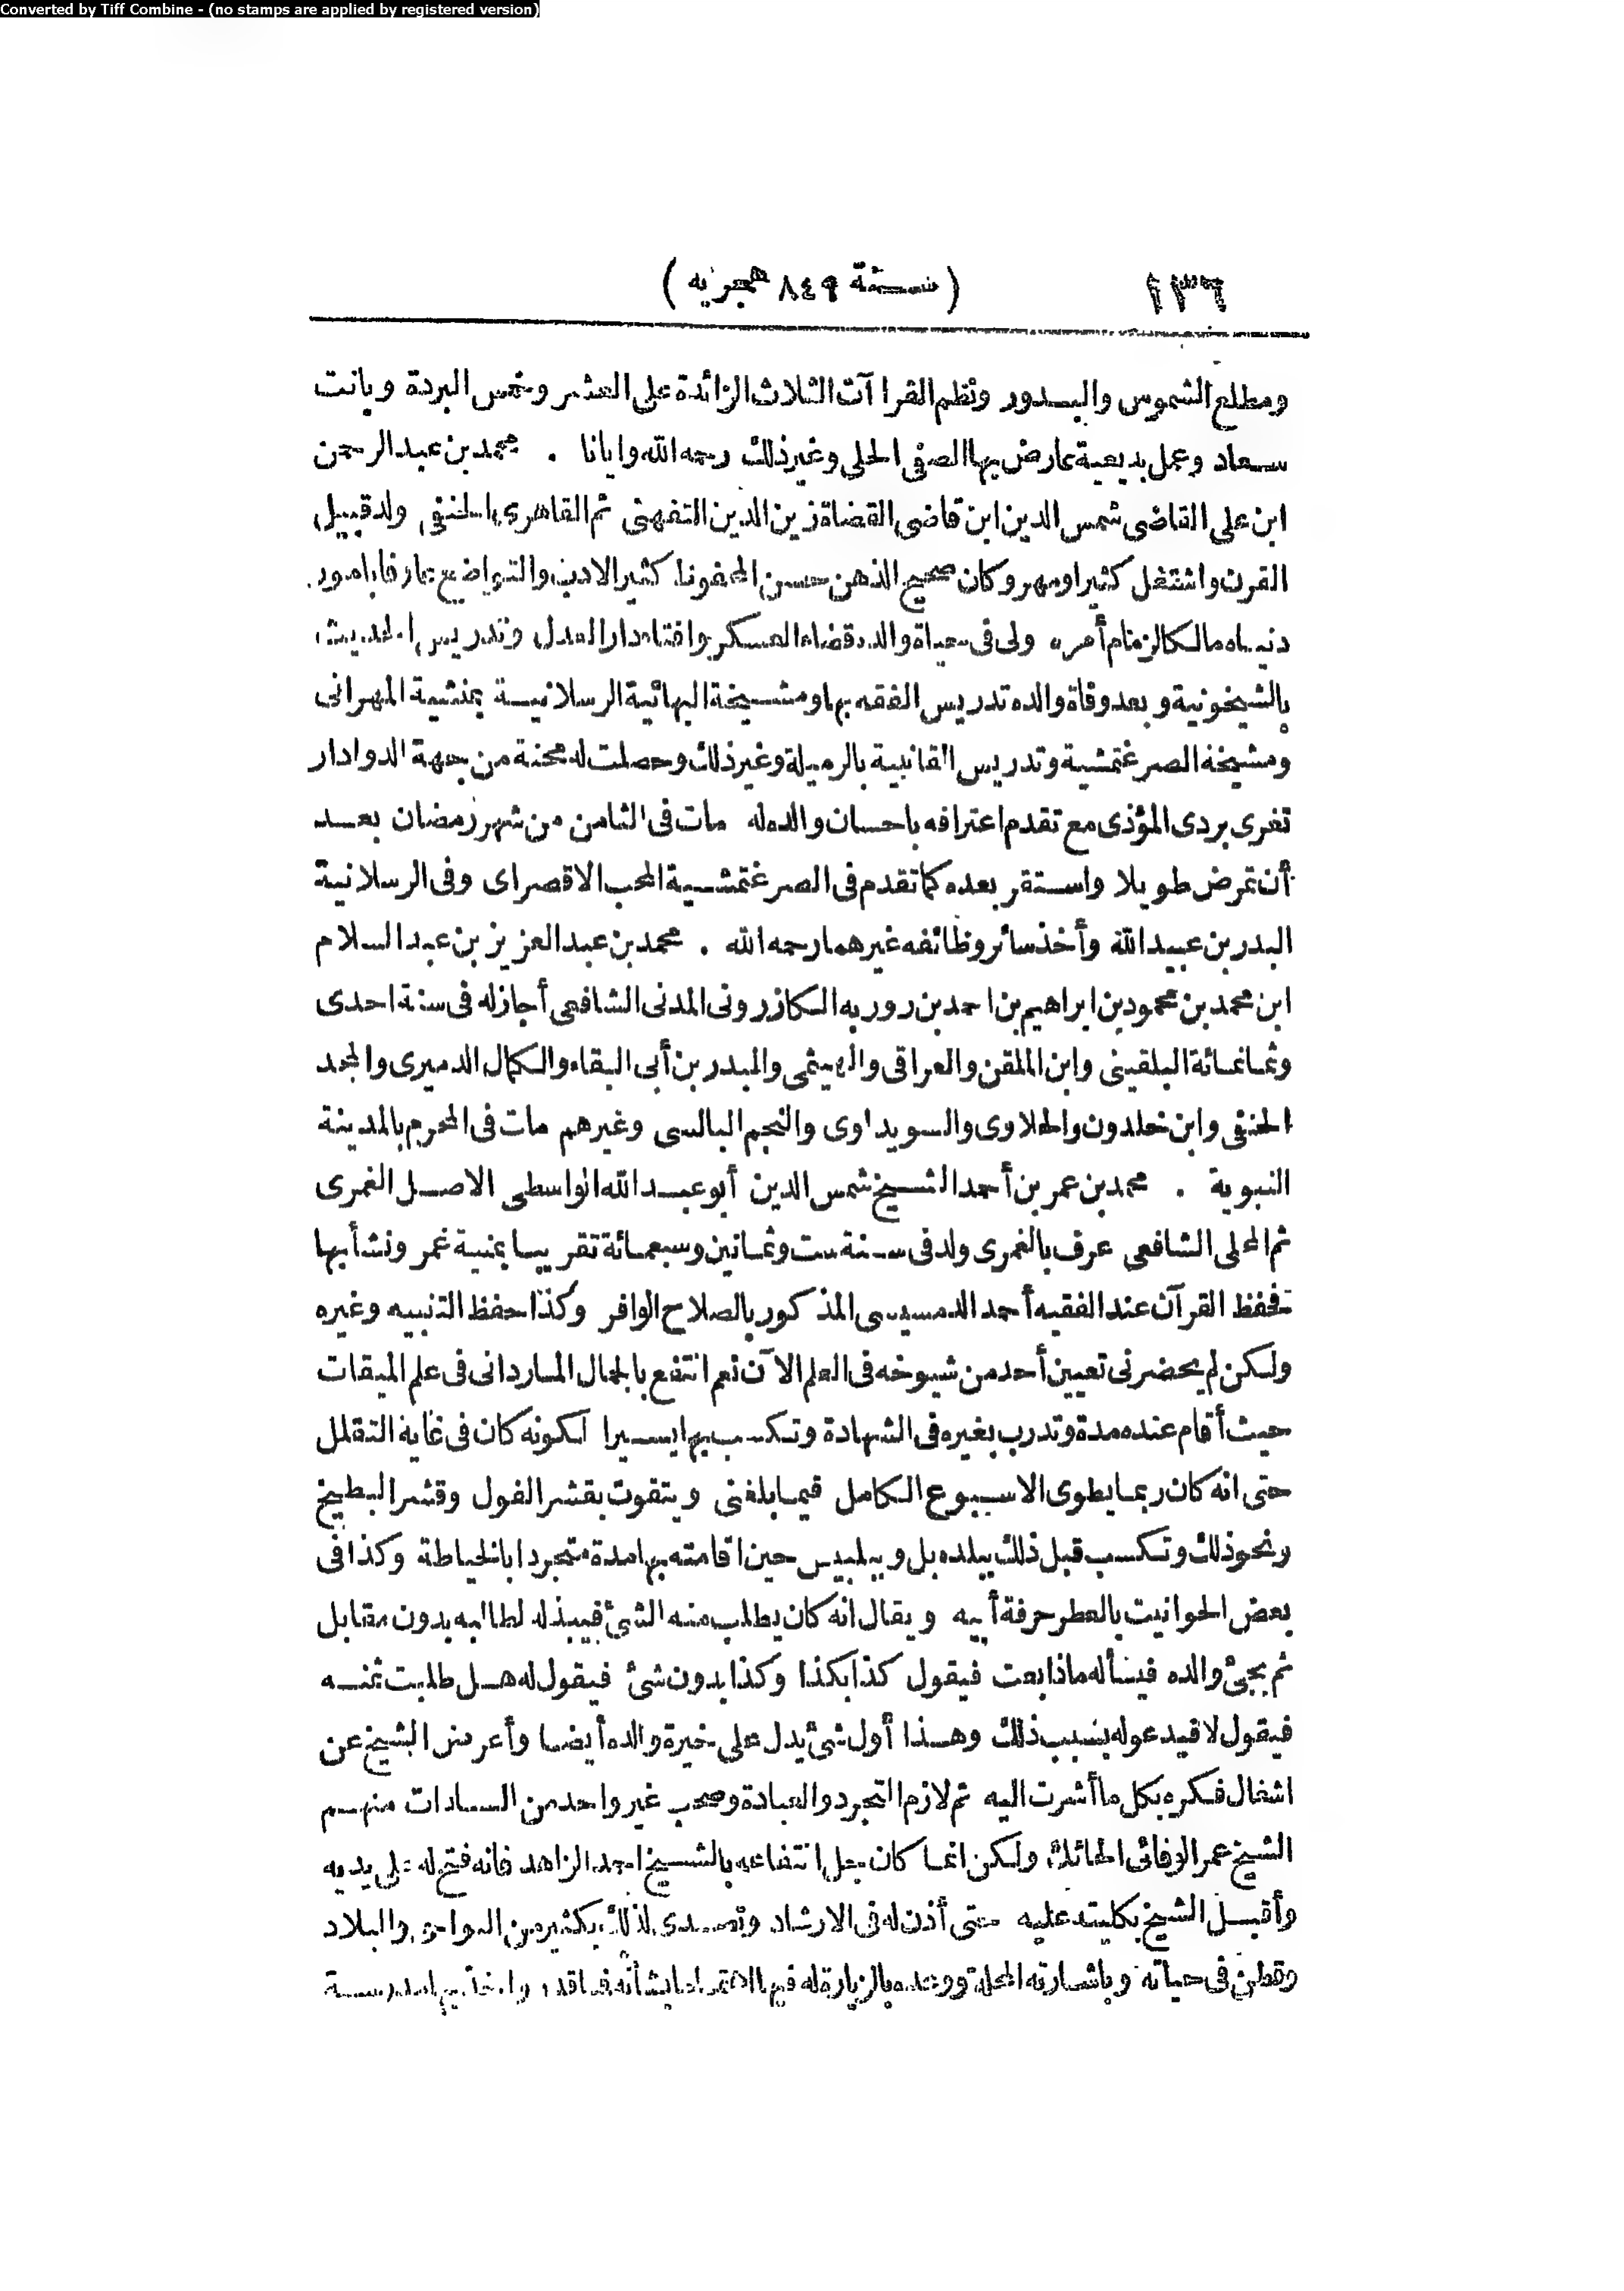 Converted by Tiff Combine - (no stamps are applied by registered version)
١٣٦ (سنة ٨٤٩ هجريه)
ومطلع الشموس والبدور ونظم القراآت الثلاث الزائدة على العشر وخمس البردة وبانت
سعاد وعمل بديعية عارض بها الصفى الحلى وغير ذلك رحمه الله وايانا . محمد بن عبد الرحمن
ابن على القاضى شمس الدين ابن قاضى القضاة زين الدين التفهنى ثم القاهرى الحنفى ولد قبيل
القرن واشتغل كثيرا ومهر وكان صحيح الذهن حسن المحفوظ كثير الادب والتواضع عارفا بامور
دنياه مالكا لزمام أمره ولى فى حياة والده قضاء العسكر وافتاء دار العدل وتدريس الحديث
بالشيخونية وبعد وفاة والده تدريس الفقه بها ومشيخة البهائية الرسلانية بمنشية المهرانى
ومشيخة الصرغتمشية وتدريس القانبية بالرميلة وغير ذلك وحصلت له محنة من جهة الدوادار
تغرى بردى المؤذى مع تقدم اعترافه باحسان والده له مات فى الثامن من شهر رمضان بعد
أن تمرض طويلا واستقر بعده كما تقدم فى الصرغتمشية المحب الاقصراى وفى الرسلانية
البدر بن عبيد الله وأخذ سائر وظائفه غيرهما رحمه الله . محمد بن عبد العزيز بن عبد السلام
ابن محمد بن محمود بن ابراهيم بن احمد بن روربه الكازرونى المدنى الشافعى أجاز له فى سنة احدى
وثمانمائة البلقينى وابن الملقن والعراقى والهيثمى والبدر بن أبى البقاء والكمال الدميرى والمجد
الحنفى وابن خلدون والحلاوى والسويداوى والنجم البالسى وغيرهم مات فى المحرم بالمدينة
النبوية . محمد بن عمر بن أحمد الشيخ شمس الدين أبو عبد الله الواسطى الاصل الغمرى
ثم المحلى الشافعى عرف بالغمرى ولد فى سنة ست وثمانين وسبعمائة تقريبا بمنية غمر ونشأ بها
فحفظ القرآن عند الفقيه أحمد الدمسيسى المذكور بالصلاح الوافر وكذا حفظ التنبيه وغيره
ولكن لم يحضرنى تعيين أحد من شيوخه فى العلم الآن نعم انتفع بالجمال الماردانى فى علم الميقات
حيث أقام عنده مدة وتدرب بغيره فى الشهادة وتكسب بها يسيرا لكونه كان فى غاية التقلل
حتى انه كان ربما يطوى الاسبوع الكامل فيما بلغنى ويتقوت بقشر الفول وقشر البطيخ
ونحو ذلك وتكسب قبل ذلك ببلده بل وببلبيس حين اقامته بها مدة متجردا بالخياطة وكذا فى
بعض الحوانيت بالعطر حرفة أبيه ويقال انه كان يطلب منه الشئ فيبذله لطالبه بدون مقابل
ثم يجئ والده فيسأله ماذا بعت فيقول كذا بكذا وكذا بدون شئ فيقول له هل طلبت ثمنه
فيقول لا فيدعو له بسبب ذلك وهذا أول شئ يدل على خيرة والده أيضا وأعرض الشيخ عن
اشغال فكره بكل ما أشرت اليه ثم لازم التجرد والعبادة وصحب غير واحد من السادات منهم
الشيخ عمر الوفائى الحائك ولكن انما كان جل انتفاعه بالشيخ احمد الزاهد فانه فتح له على يديه
وأقبل الشيخ بكليته عليه حتى أذن له فى الارشاد وتصدى لذلك بكثير من النواحى والبلاد
وقطن فى حياته وباشارته المحلة ووعده بالزيارة له فيها واخذ بها مدرسة